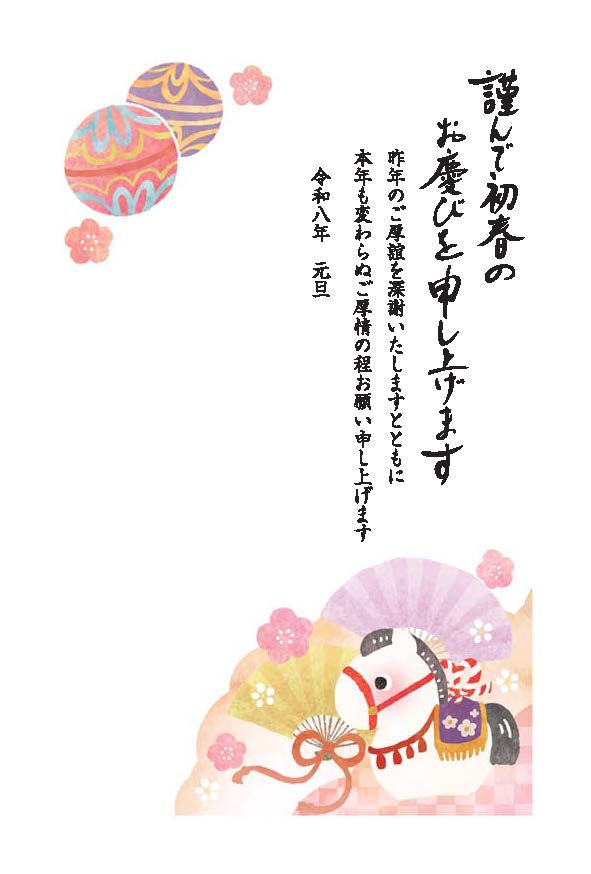 謹んで初春の
お慶びを申し上げます
昨年のご厚誼を深謝いたしますとともに
本年も変わらぬご厚情の程お願い申し上げます
令和八年　元旦